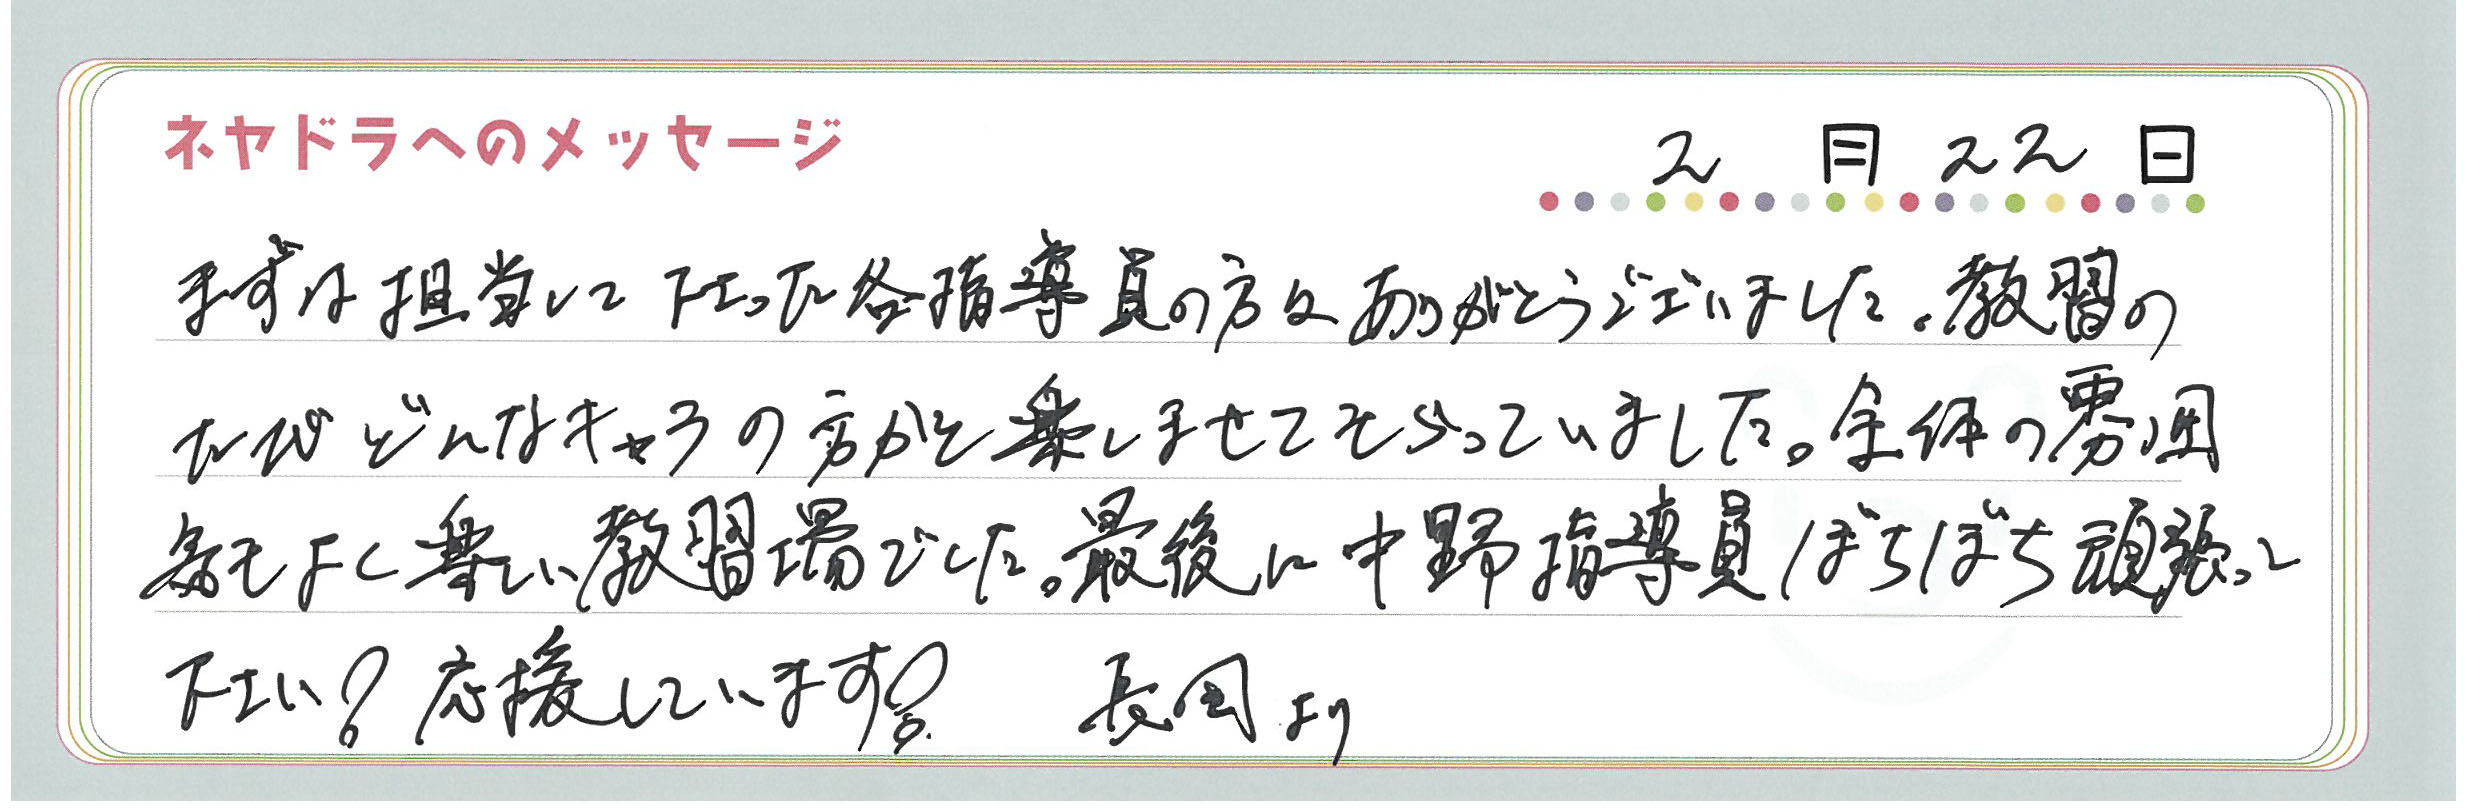 ネヤドラへのメッセージ
2月22日
まずは担当して下さった各指導員の方々ありがとうございました。教習の
たびどんなキャラの方かと楽しませてもらっていました。全体の雰囲
気もよく楽しい教習場でした。最後に中野指導員ぼちぼち頑張って
下さい! 応援しています! 長岡より